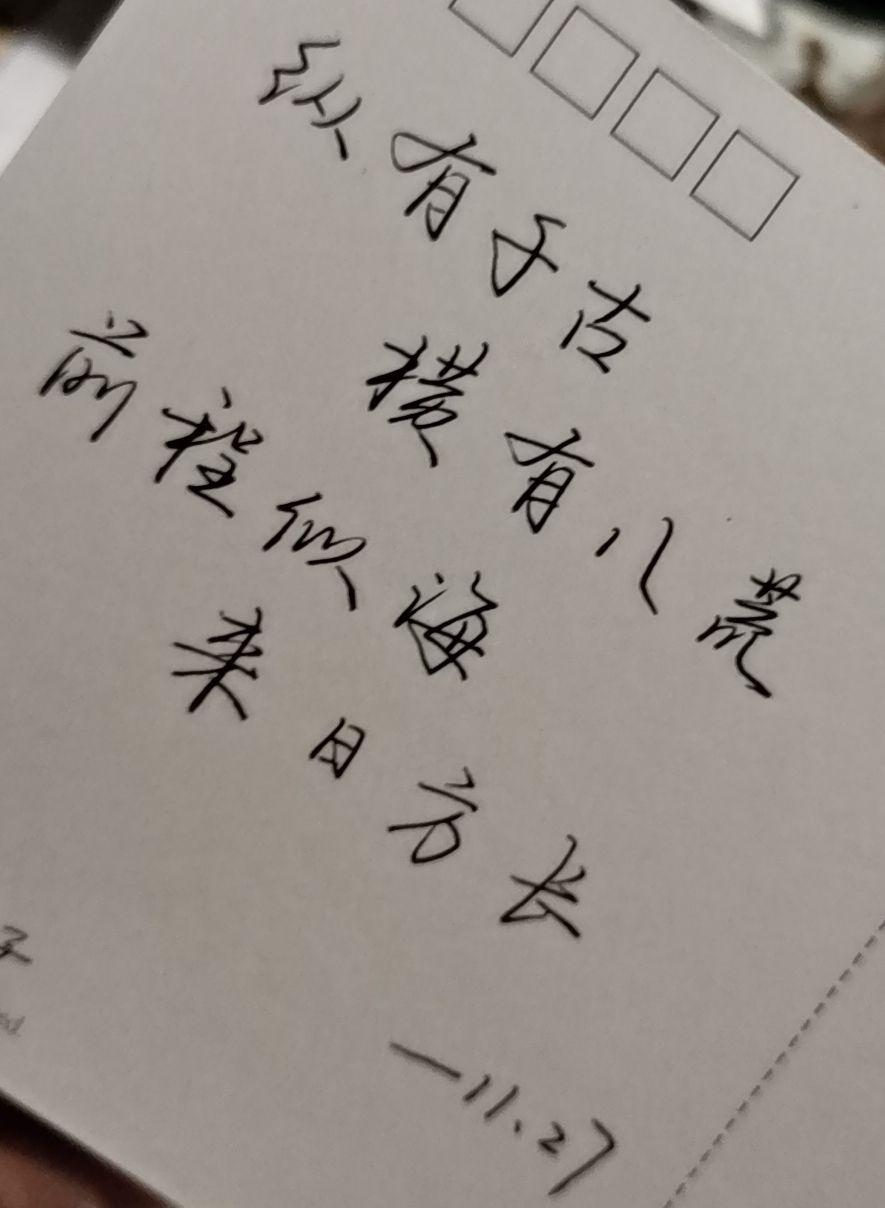 纵有千古
横有八荒
前程似海
来日方长
—11.27